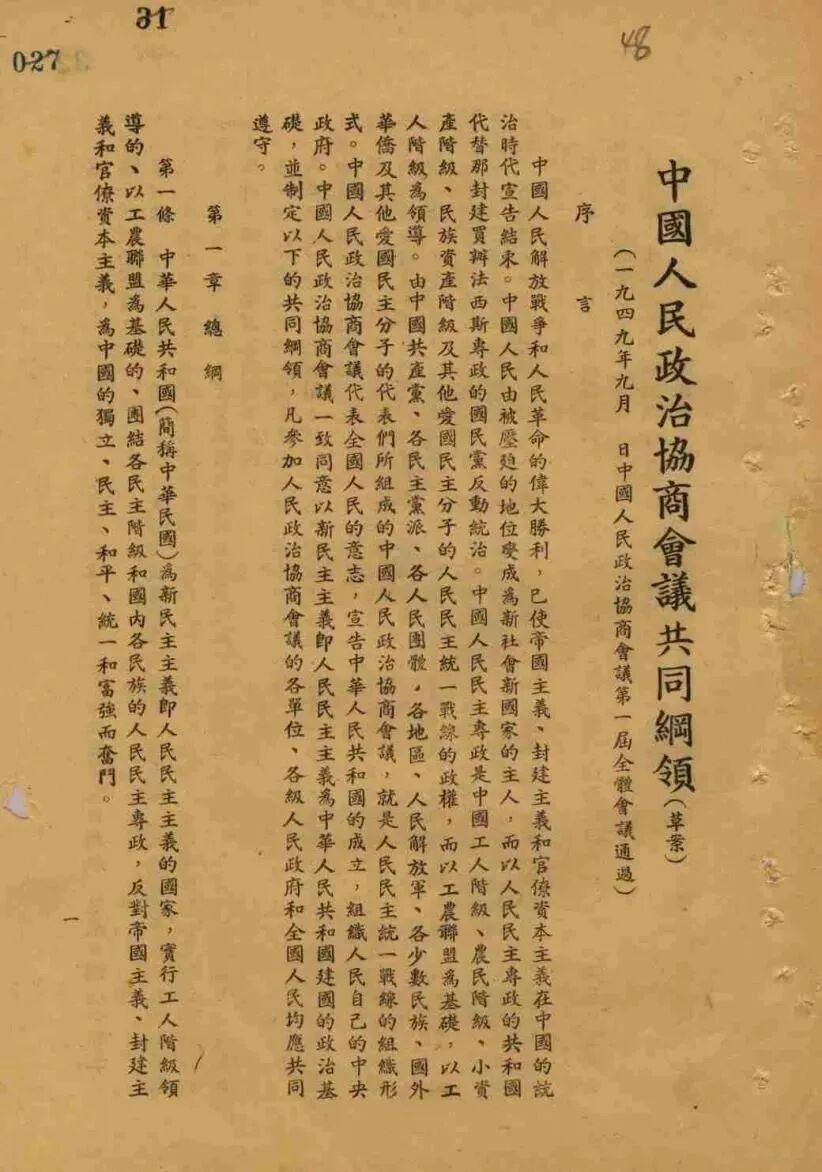 31
027
48
中國人民政治協商會議共同綱領(草案)
(一九四九年九月　日中國人民政治協商會議第一屆全體會議通過)
序言
中國人民解放戰爭和人民革命的偉大勝利，已使帝國主義、封建主義和官僚資本主義在中國的統
治時代宣告結束。中國人民由被壓迫的地位變成為新社會新國家的主人，而以人民民主專政的共和國
代替那封建買辦法西斯專政的國民黨反動統治。中國人民民主專政是中國工人階級、農民階級、小資
產階級、民族資產階級及其他愛國民主分子的人民民主統一戰線的政權，而以工農聯盟為基礎，以工
人階級為領導。由中國共產黨、各民主黨派、各人民團體，各地區、人民解放軍、各少數民族、國外
華僑及其他愛國民主分子的代表們所組成的中國人民政治協商會議，就是人民民主統一戰線的組織形
式。中國人民政治協商會議代表全國人民的意志，宣告中華人民共和國的成立，組織人民自己的中央
政府。中國人民政治協商會議一致同意以新民主主義即人民民主主義為中華人民共和國建國的政治基
礎，並制定以下的共同綱領，凡參加人民政治協商會議的各單位、各級人民政府和全國人民均應共同
遵守。
第一章 總綱
第一條　中華人民共和國(簡稱中華民國)為新民主主義即人民民主主義的國家，實行工人階級領
導的、以工農聯盟為基礎的、團結各民主階級和國內各民族的人民民主專政，反對帝國主義、封建主
義和官僚資本主義，為中國的獨立、民主、和平、統一和富強而奮鬥。
一